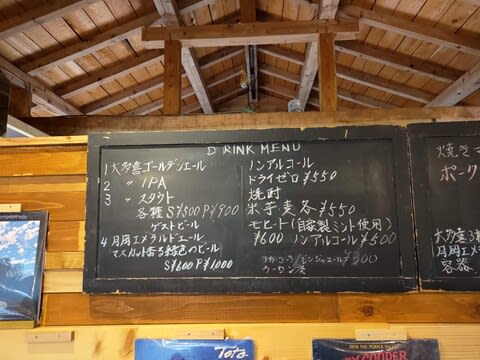 DRINK MENU
1 大多喜ゴールデンエール
2 〃 IPA
3 〃 スタウト
各種 S¥500 P¥900
ゲストビール
4 月周エメラルドエール
マスカット香る緑色のビール
S¥600 P¥1000
ノンアルコール
ドライゼロ ¥550
焼酎
米 芋 麦 各 ¥550
モヒート(自家製ミント使用)
¥600 ノンアルコール ¥500
コカコーラ/ジンジャエール ¥300
ウーロン茶
焼き
ポーク
大多喜3種
月周エメ
容器
Toto
INTO THE PURPLE VALLEY
RY COODER